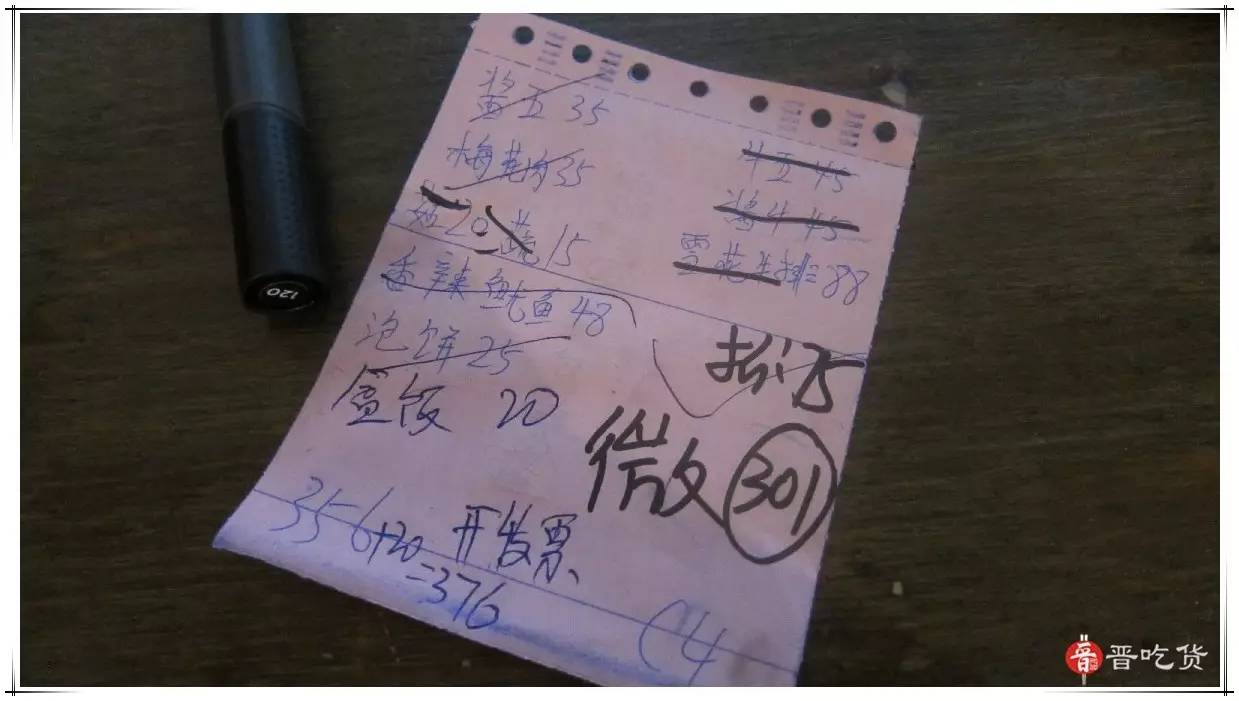 酱五 35
梅花肉 35
20 蔬 15
香辣鱿鱼 48
泡饼 25
盒饭 20
牛五 45
酱牛 45
雪花牛排 88
扣 75
微 301
356+20 开发票
=376
C4
120
晋 晋吃货